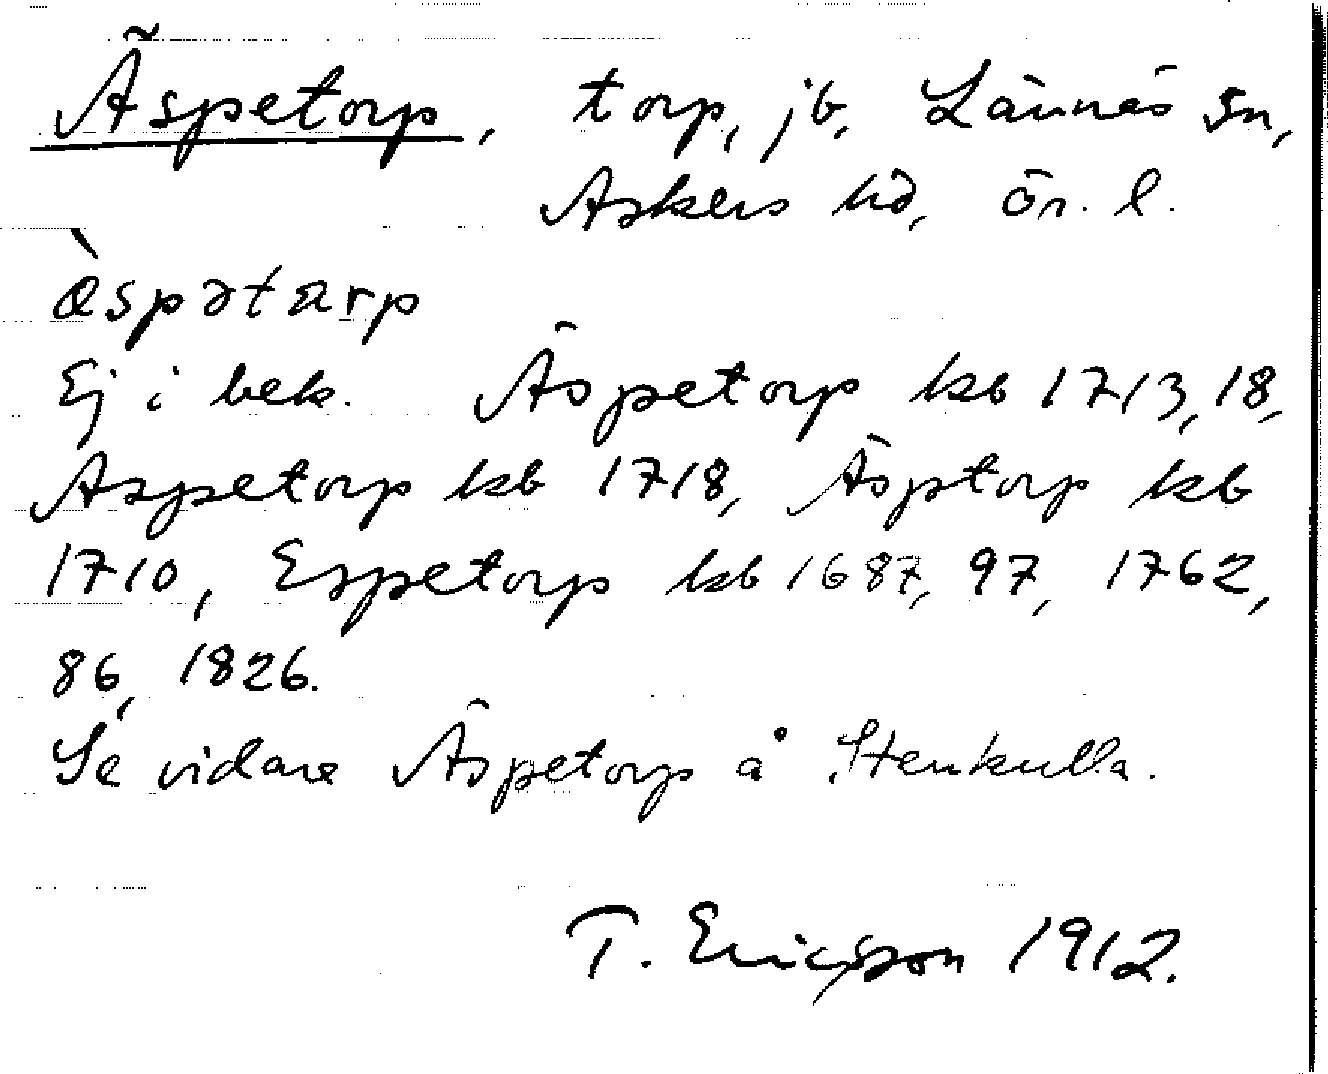 Äspetorp, torp, jb, Lännäs sn,
Askers hd, Ör. l.
æ̀spətarp
Ej i bek. Äspetorp kb 1713, 18,
Aspetorp kb 1718, Äsptorp kb
1710, Espetorp kb 1687, 97, 1762,
86, 1826.
Se vidare Äspetorp å Stenkulla.
T. Ericsson 1912.